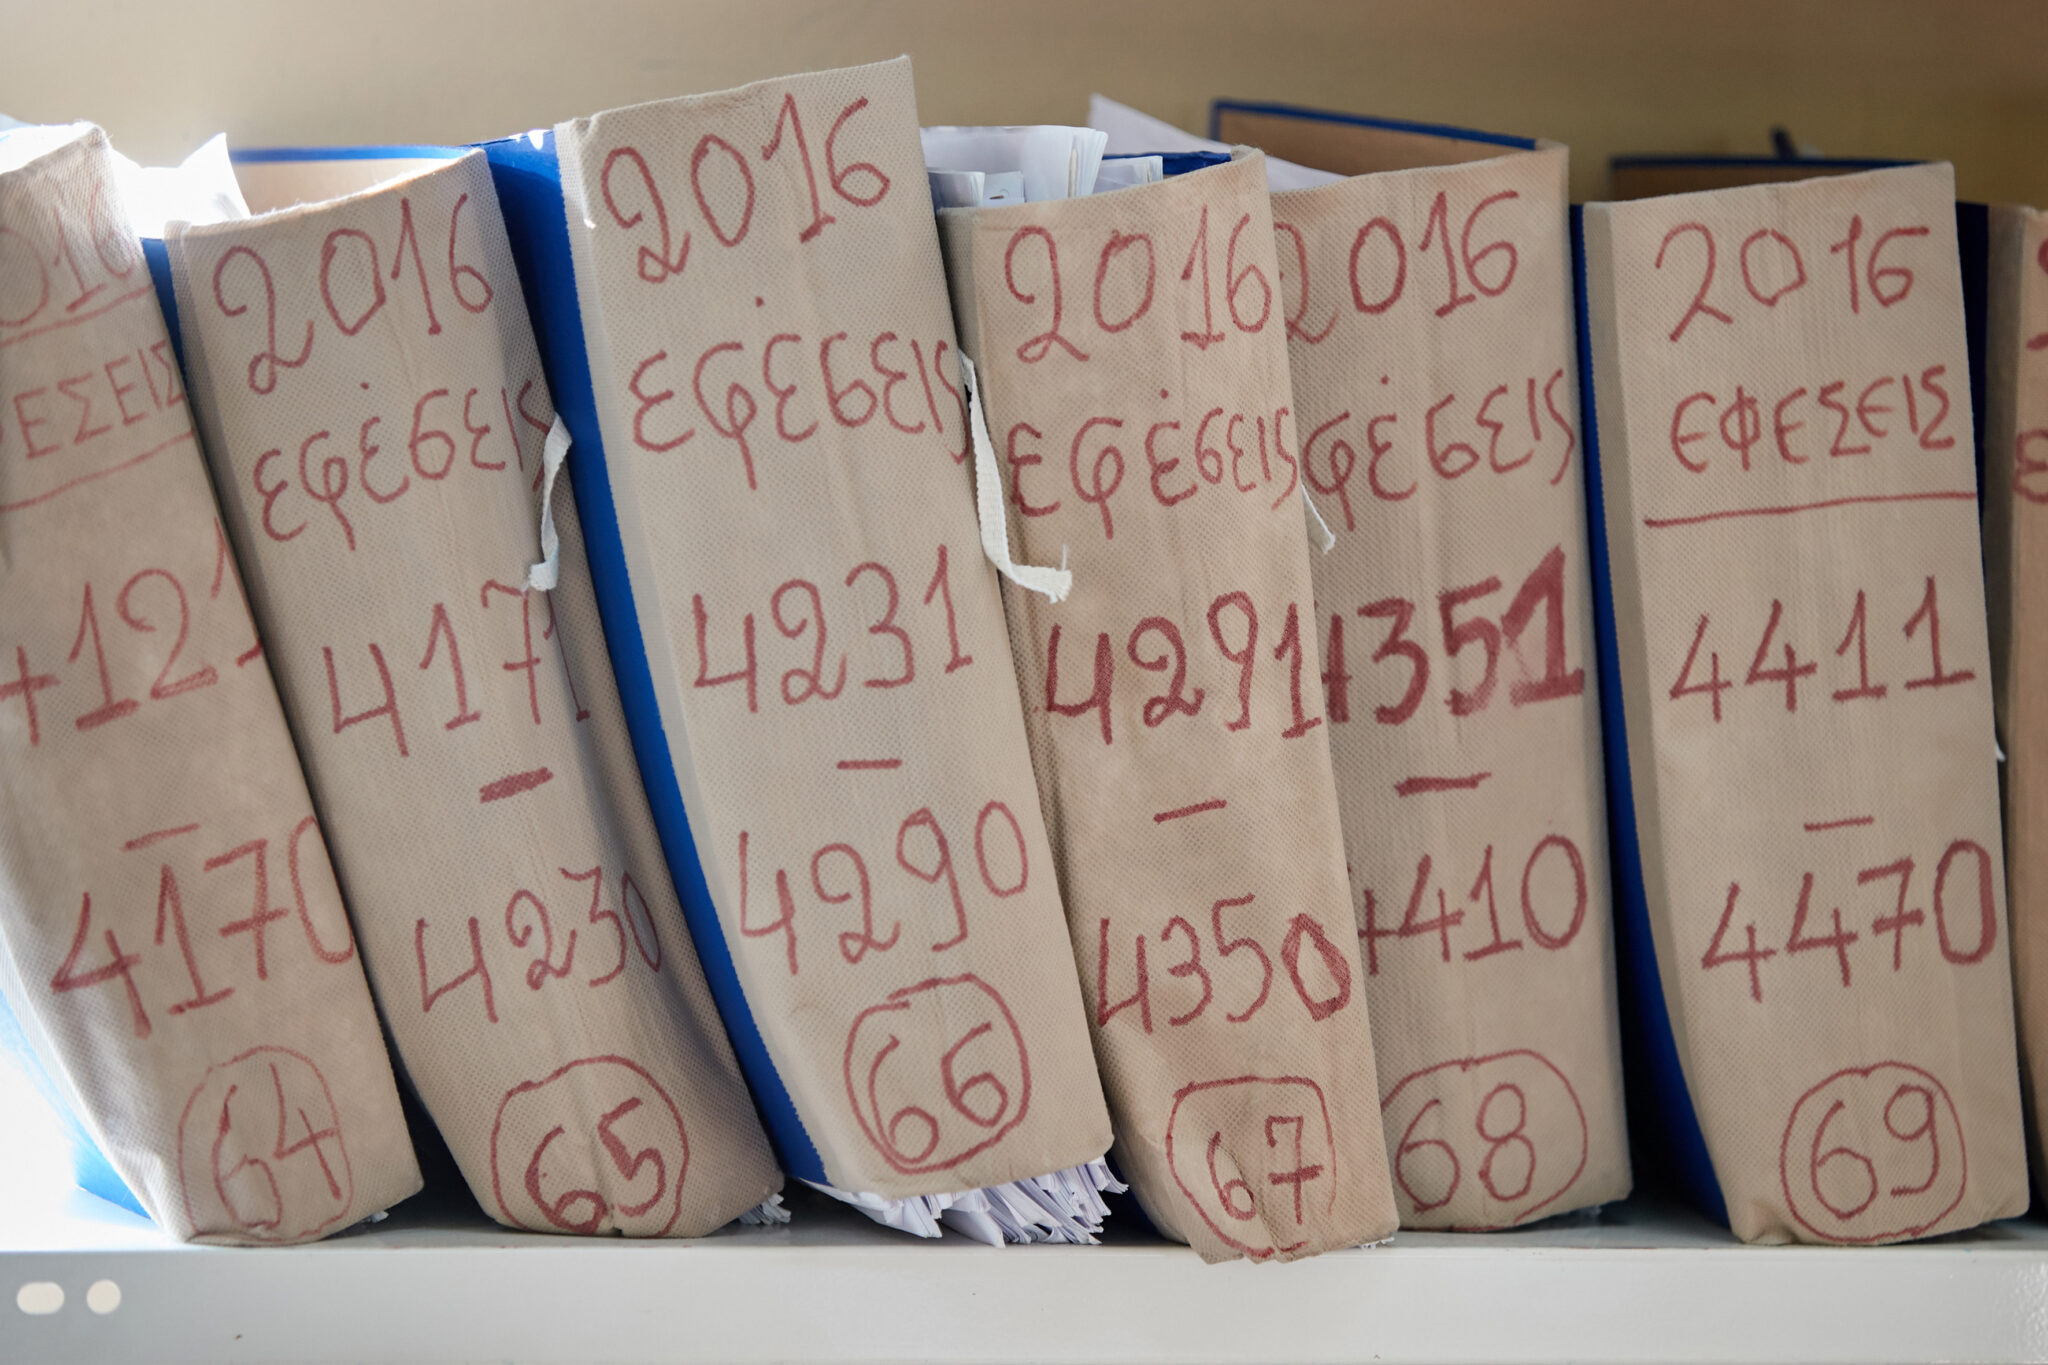 2016
ΕΣΕΙΣ
4121
–
4170
64
2016
εφέσεις
4171
–
4230
65
2016
εφέσεις
4231
–
4290
66
2016
εφέσεις
4291
–
4350
67
2016
εφέσεις
4351
–
4410
68
2016
ΕΦΕΣΕΙΣ
4411
–
4470
69